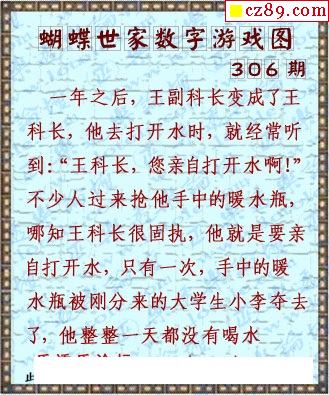 cz89.com
蝴蝶世家数字游戏图
306 期
一年之后，王副科长变成了王
科长，他去打开水时，就经常听
到：“王科长，您亲自打开水啊！”
不少人过来抢他手中的暖水瓶，
哪知王科长很固执，他就是要亲
自打开水，只有一次，手中的暖
水瓶被刚分来的大学生小李夺去
了，他整整一天都没有喝水
此